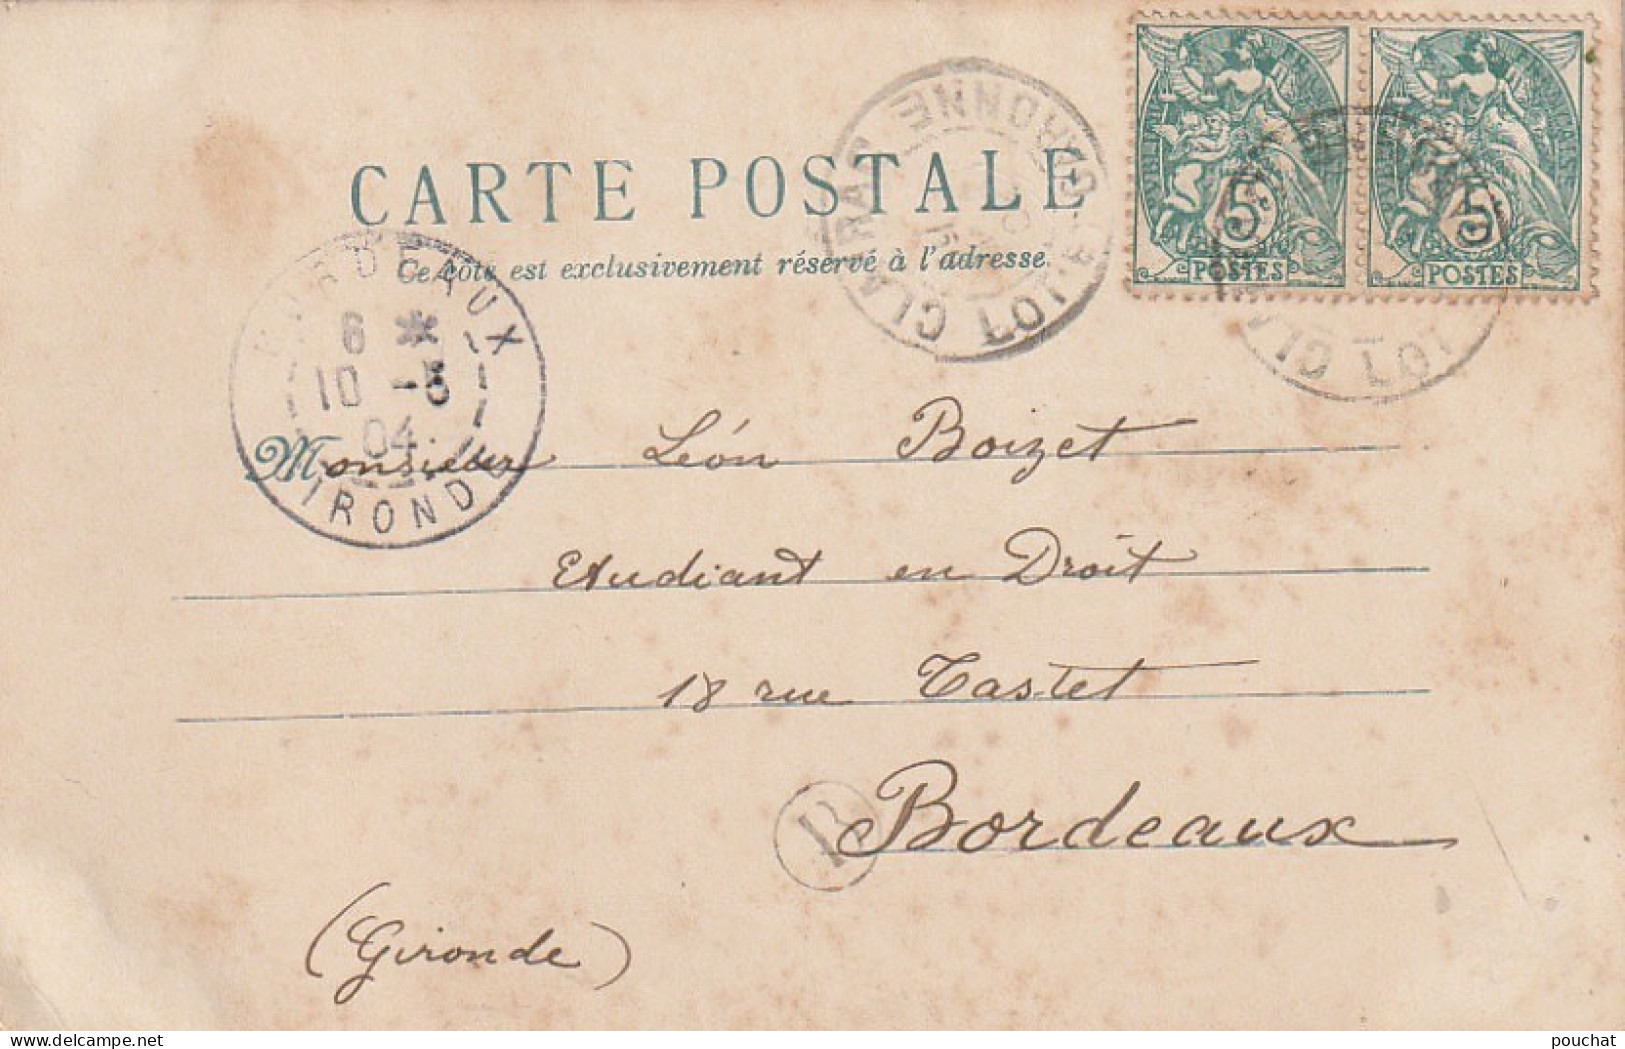 CARTE POSTALE
Ce côté est exclusivement réservé à l'adresse.
5
POSTES
5
POSTES
CLAIRAC LOT-ET-GARONNE
BORDEAUX
6 *
10 -5
04
GIRONDE
Monsieur Léon Boizet
Etudiant en Droit
18 rue Tastet
Bordeaux
(Gironde)
pouchat